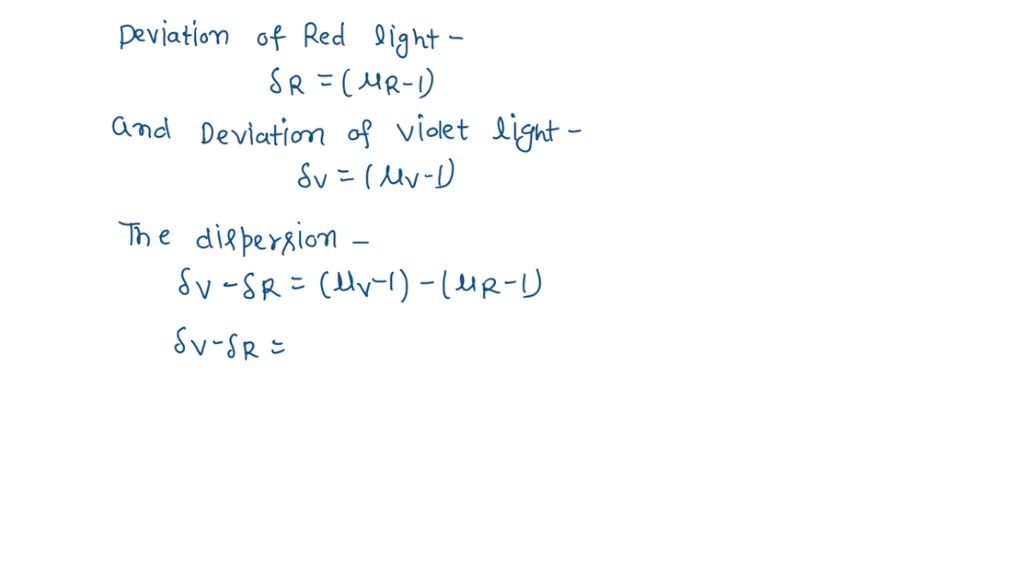 Deviation of Red light -
δR = (μR-1)
and Deviation of violet light -
δv = (μv-1)
The dispersion -
δv - δR = (μv-1) - (μR-1)
δv - δR =